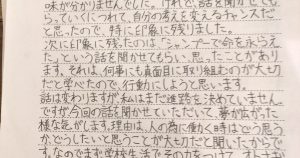 味が分かりませんでした。けれど、話を聞かせても
らっていくにつれて、自分の考えを変えるチャンスだ
と思ったので、特に印象に残りました。
次に印象に残ったのは、「シャンプーで命を永らえ
た」という話を聞かせてもらい、思ったことがあり
ます。それは、何事にも真面目に取り組むのが大切
だと学べたので、行動にしようと思います。
話は変わりますが、私はまだ進路を決めていません
ですが、今回の話を聞かせていただいて、夢が広がった
様な気がします。理由は、人の為に働く時はどう思
うか、どうしたいと思うかが大切だと聞いたからで
す。なのでまず学校生活で